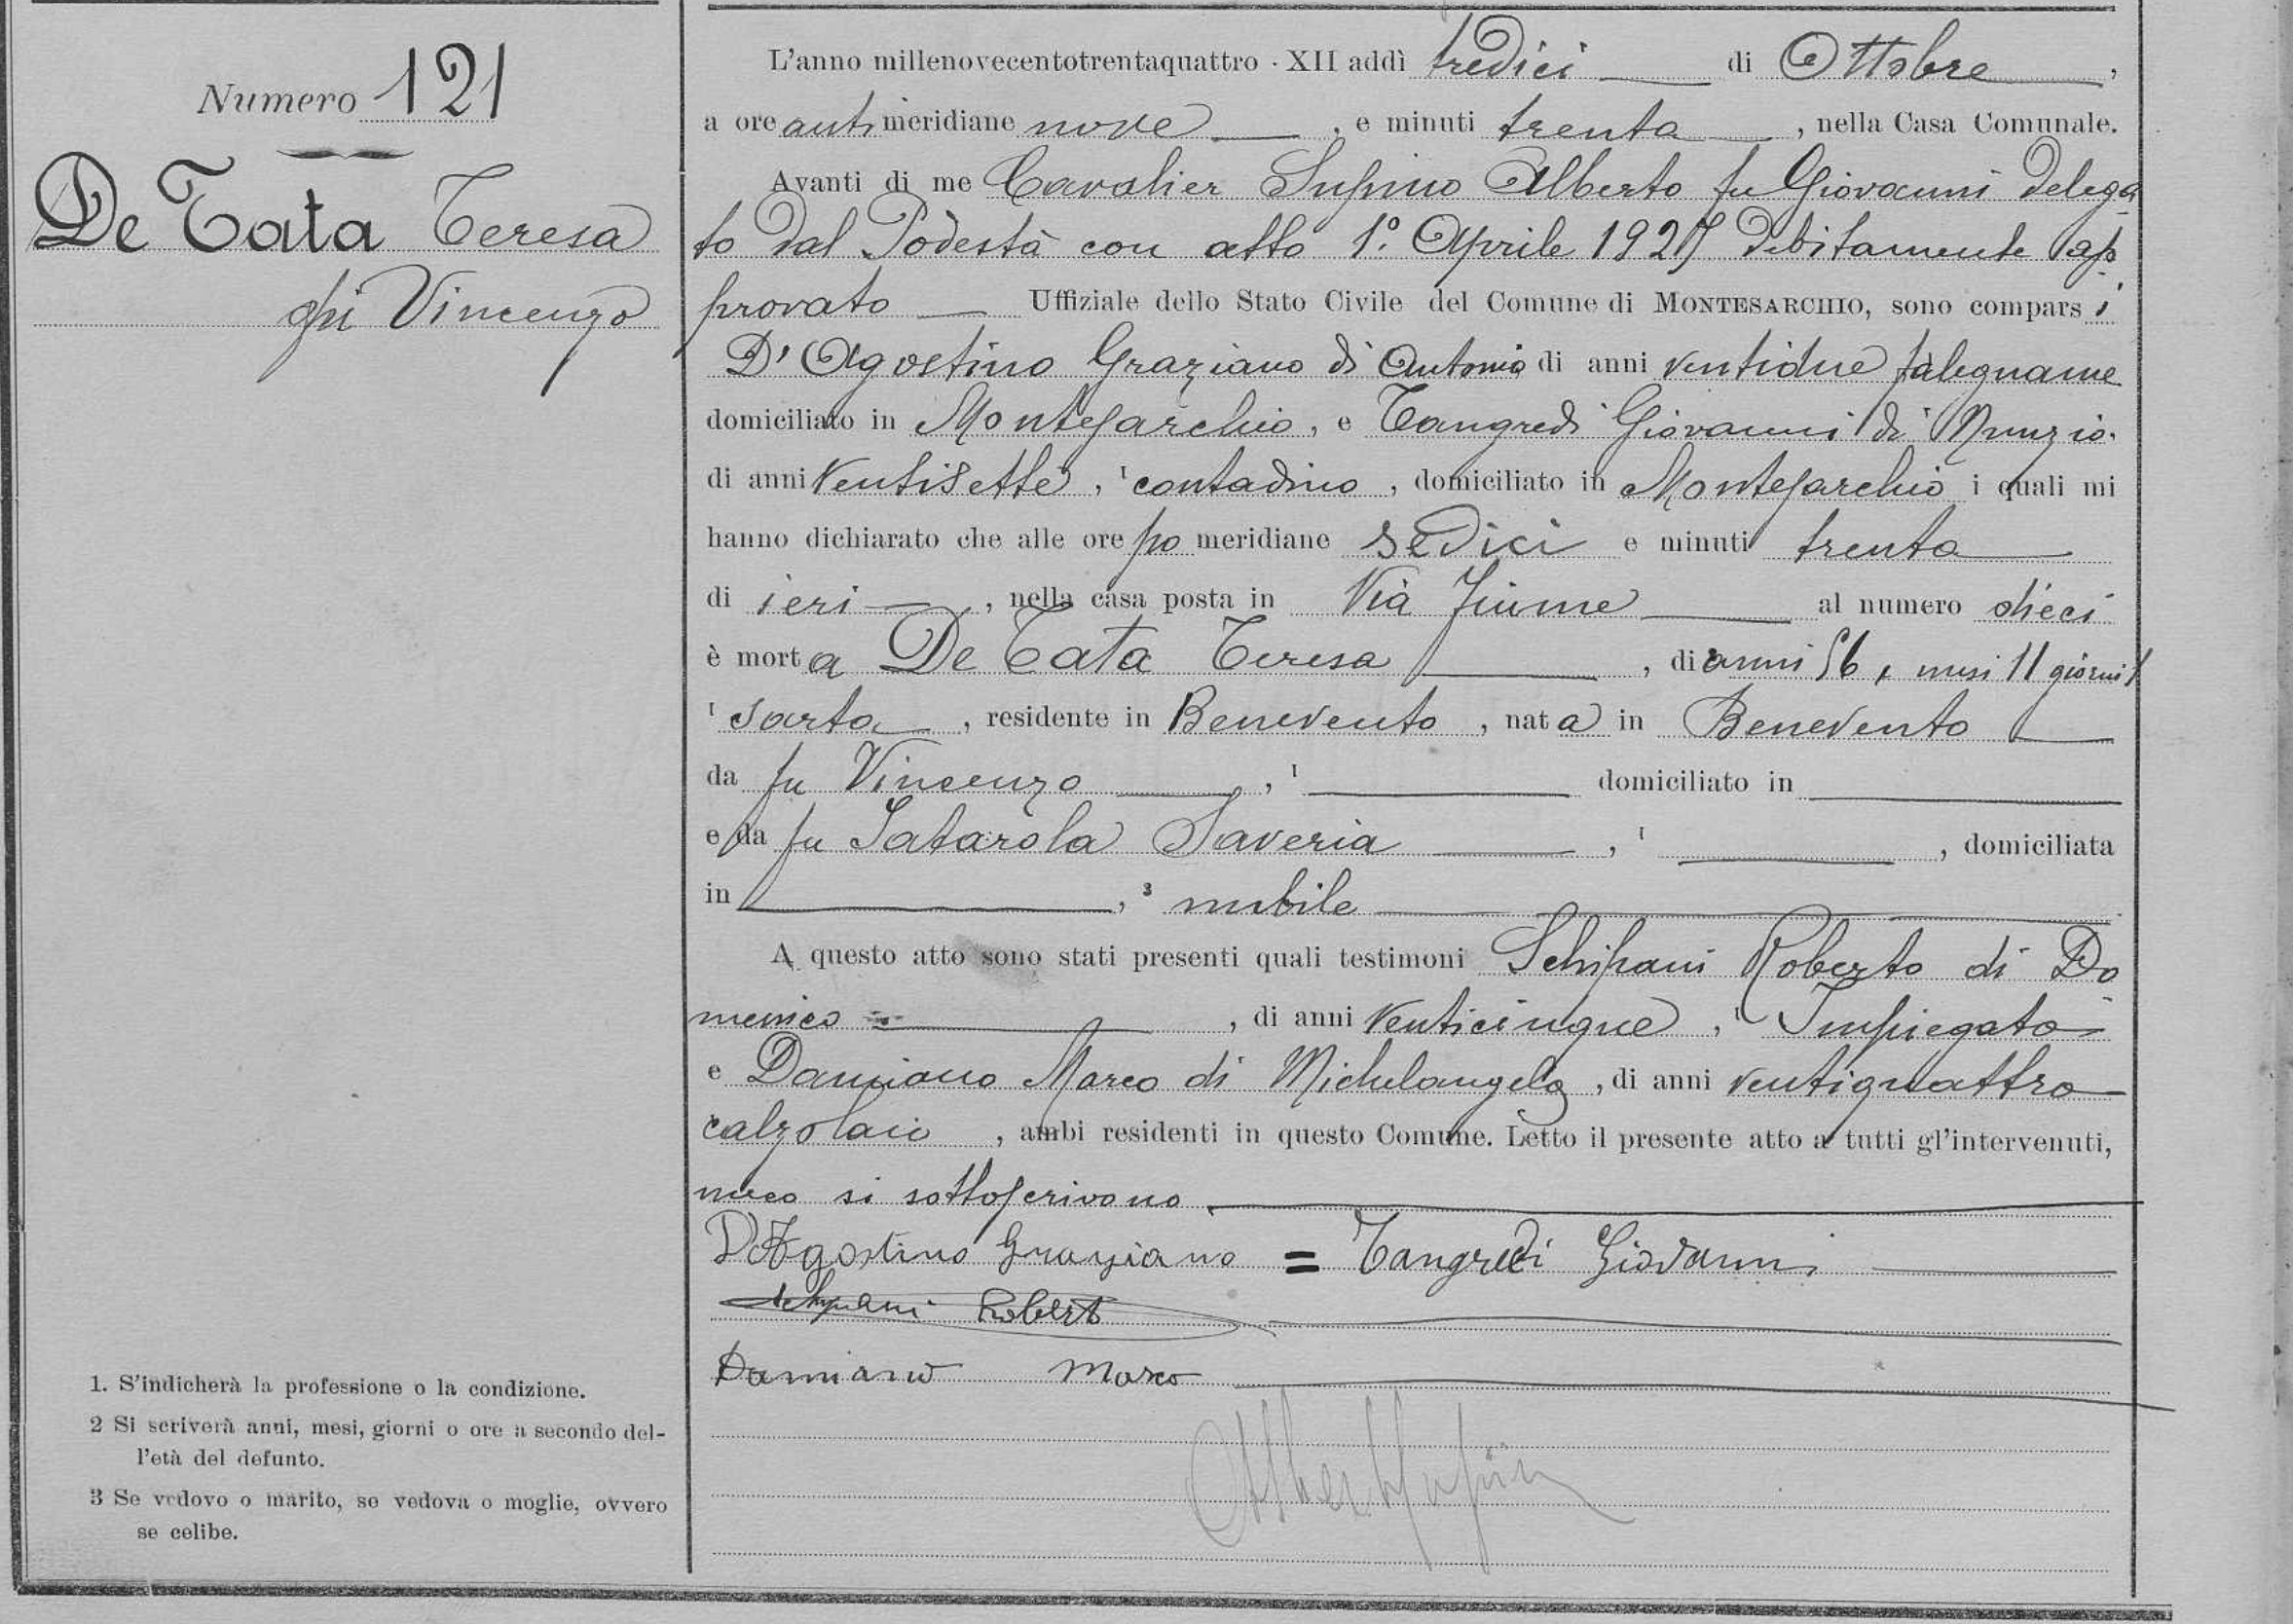 Numero 121
De Tata Teresa
fu Vincenzo
1. S'indicherà la professione o la condizione.
2 Si scriverà anni, mesi, giorni o ore a secondo del-
l'età del defunto.
3 Se vedovo o marito, se vedova o moglie, ovvero
se celibe.
L'anno millenovecentotrentaquattro - XII addì tredici di Ottobre,
a ore antimeridiane nove, e minuti trenta, nella Casa Comunale.
Avanti di me Cavalier Supino Alberto fu Giovanni delega
to dal Podestà con atto 1° Aprile 1927 debitamente ap
provato Uffiziale dello Stato Civile del Comune di MONTESARCHIO, sono comparsi
D'Agostino Graziano di Antonio di anni ventidue falegname
domiciliato in Montesarchio, e Tangredi Giovanni di Nunzio.
di anni ventisette, 1 contadino, domiciliato in Montesarchio i quali mi
hanno dichiarato che alle ore pomeridiane sedici e minuti trenta
di ieri, nella casa posta in Via Fiume al numero dieci
è morta De Tata Teresa, di anni 56, mesi 11 giorni 1
1 sarta, residente in Benevento, nata in Benevento
da fu Vincenzo, 1 domiciliato in
e da fu Saveria, 1, domiciliata
in, 3 nubile
A questo atto sono stati presenti quali testimoni Schipani Roberto di Do
menico, di anni venticinque, 1 Impiegato
e Damiano Marco di Michelangelo, di anni ventiquattro
calzolaio, ambi residenti in questo Comune. Letto il presente atto a tutti gl'intervenuti,
meco si sottoscrivono
D'Agostino Graziano = Tangredi Giovanni
Schipani Roberto
Damiano Marco
Alberto Supino